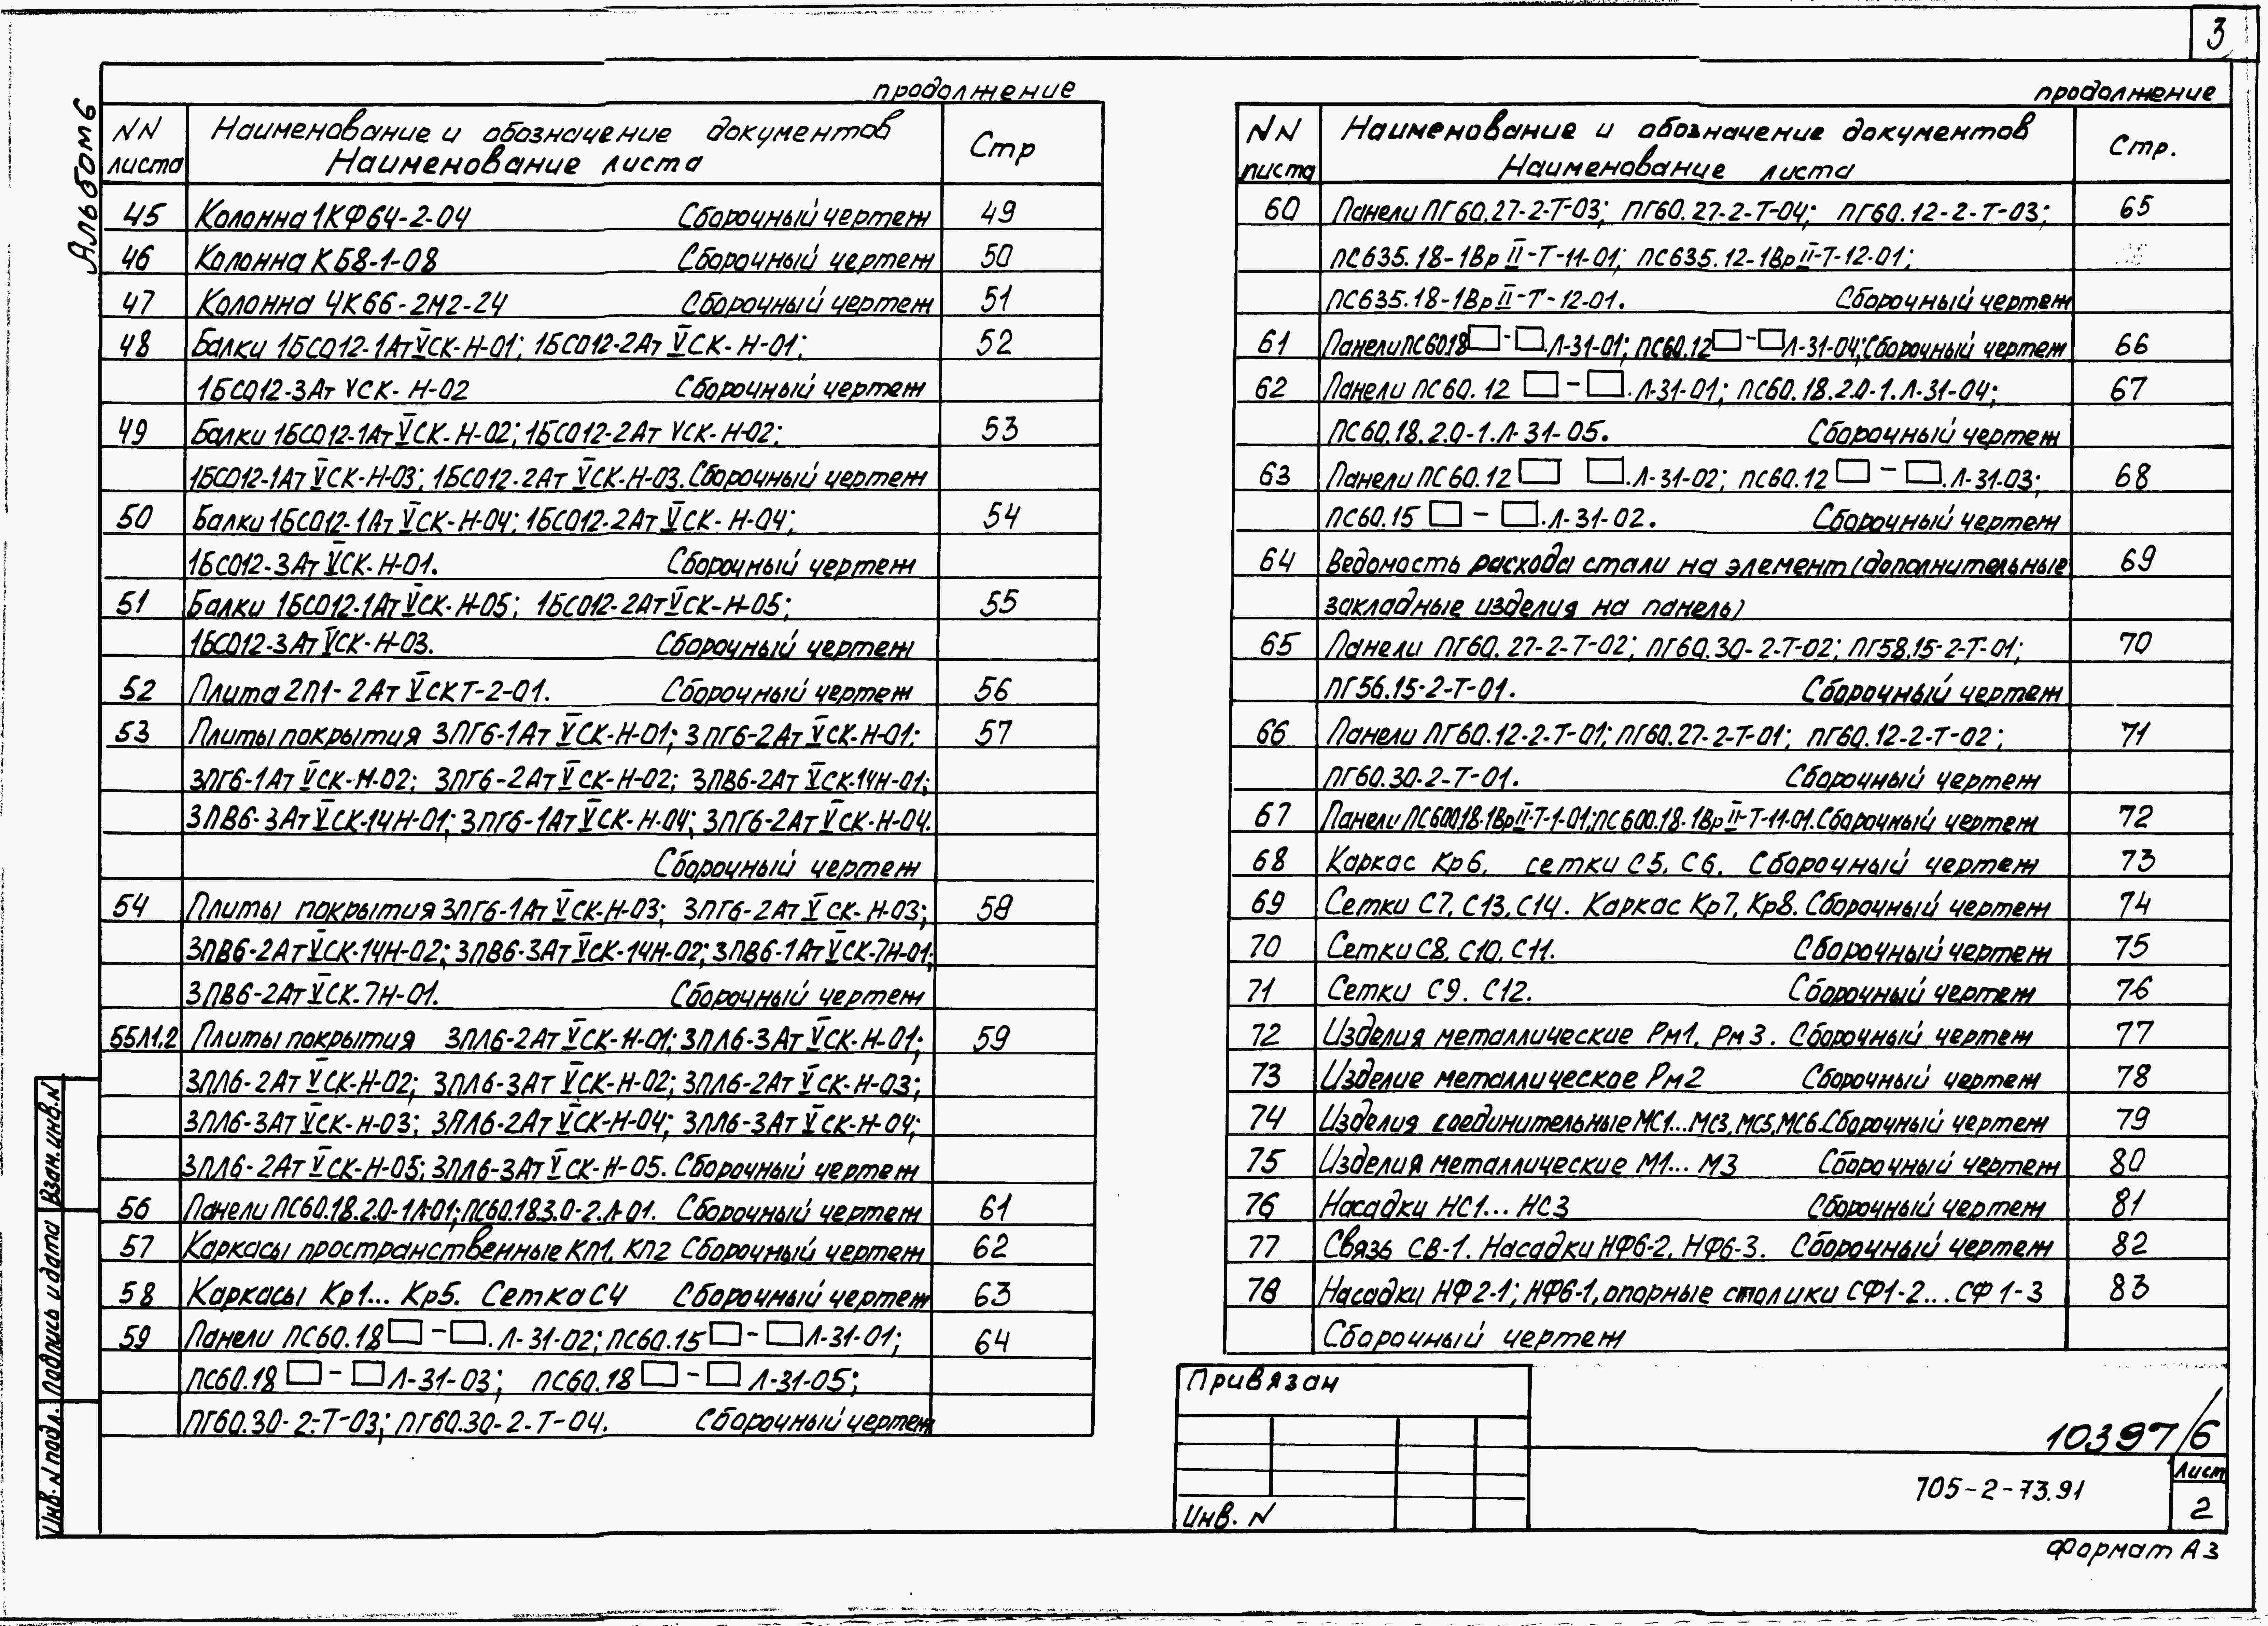 3
Альбом 6
продолжение
NN листа Наименование и обозначение документов Наименование листа Стр
45 Колонна 1КФ64-2-04 Сборочный чертеж 49
46 Колонна КБ8-1-08 Сборочный чертеж 50
47 Колонна 4К66-2М2-24 Сборочный чертеж 51
48 Балки 1БСО12-1АтVСК-Н-01; 1БСО12-2АтVСК-Н-01; 52
1БСО12-3АтVСК-Н-02 Сборочный чертеж
49 Балки 1БСО12-1АтVСК-Н-02; 1БСО12-2АтVСК-Н-02; 53
1БСО12-1АтVСК-Н-03; 1БСО12-2АтVСК-Н-03. Сборочный чертеж
50 Балки 1БСО12-1АтVСК-Н-04; 1БСО12-2АтVСК-Н-04; 54
1БСО12-3АтVСК-Н-01. Сборочный чертеж
51 Балки 1БСО12-1АтVСК-Н-05; 1БСО12-2АтVСК-Н-05; 55
1БСО12-3АтVСК-Н-03. Сборочный чертеж
52 Плита 2П1-2АтVСКТ-2-01. Сборочный чертеж 56
53 Плиты покрытия 3ПГ6-1АтVСК-Н-01; 3ПГ6-2АтVСК-Н-01; 57
3ПГ6-1АтVСК-Н-02; 3ПГ6-2АтVСК-Н-02; 3ПВ6-2АтVСК-14Н-01;
3ПВ6-3АтVСК-14Н-01; 3ПГ6-1АтVСК-Н-04; 3ПГ6-2АтVСК-Н-04.
Сборочный чертеж
54 Плиты покрытия 3ПГ6-1АтVСК-Н-03; 3ПГ6-2АтVСК-Н-03; 58
3ПВ6-2АтVСК-14Н-02; 3ПВ6-3АтVСК-14Н-02; 3ПВ6-1АтVСК-7Н-01;
3ПВ6-2АтVСК-7Н-01. Сборочный чертеж
55Л1.2 Плиты покрытия 3ПЛ6-2АтVСК-Н-01; 3ПЛ6-3АтVСК-Н-01; 59
3ПЛ6-2АтVСК-Н-02; 3ПЛ6-3АтVСК-Н-02; 3ПЛ6-2АтVСК-Н-03;
3ПЛ6-3АтVСК-Н-03; 3ПЛ6-2АтVСК-Н-04; 3ПЛ6-3АтVСК-Н-04;
3ПЛ6-2АтVСК-Н-05; 3ПЛ6-3АтVСК-Н-05. Сборочный чертеж
56 Панели ПС60.18.2.0-1Л-01; ПС60.18.3.0-2.Л-01. Сборочный чертеж 61
57 Каркасы пространственные КП1, КП2 Сборочный чертеж 62
58 Каркасы Кр1... Кр5. Сетка С4 Сборочный чертеж 63
59 Панели ПС60.18□-□.Л-31-02; ПС60.15□-□Л-31-01; 64
ПС60.18□-□Л-31-03; ПС60.18□-□Л-31-05;
ПГ60.30-2-Т-03; ПГ60.30-2-Т-04. Сборочный чертеж
продолжение
NN листа Наименование и обозначение документов Наименование листа Стр.
60 Панели ПГ60.27-2-Т-03; ПГ60.27-2-Т-04; ПГ60.12-2-Т-03; 65
ПС635.18-1ВрII-Т-11-01; ПС635.12-1ВрII-Т-12-01;
ПС635.18-1ВрII-Т-12-01. Сборочный чертеж
61 Панели ПС6018□-□.Л-31-01; ПС60.12□-□Л-31-04; Сборочный чертеж 66
62 Панели ПС60.12□-□.Л-31-01; ПС60.18.2.0-1.Л-31-04; 67
ПС60.18.2.0-1.Л-31-05. Сборочный чертеж
63 Панели ПС60.12□ □.Л-31-02; ПС60.12□-□.Л-31-03; 68
ПС60.15□-□.Л-31-02. Сборочный чертеж
64 Ведомость расхода стали на элемент (дополнительные 69
закладные изделия на панель)
65 Панели ПГ60.27-2-Т-02; ПГ60.30-2-Т-02; ПГ58.15-2-Т-01; 70
ПГ56.15-2-Т-01. Сборочный чертеж
66 Панели ПГ60.12-2-Т-01; ПГ60.27-2-Т-01; ПГ60.12-2-Т-02; 71
ПГ60.30-2-Т-01. Сборочный чертеж
67 Панели ПС600.18-1ВрII-Т-1-01; ПС600.18-1ВрII-Т-11-01. Сборочный чертеж 72
68 Каркас Кр6, сетки С5, С6. Сборочный чертеж 73
69 Сетки С7, С13, С14. Каркас Кр7, Кр8. Сборочный чертеж 74
70 Сетки С8, С10, С11. Сборочный чертеж 75
71 Сетки С9. С12. Сборочный чертеж 76
72 Изделия металлические Рм1, Рм3. Сборочный чертеж 77
73 Изделие металлическое Рм2 Сборочный чертеж 78
74 Изделия соединительные МС1...МС3, МС5, МС6. Сборочный чертеж 79
75 Изделия металлические М1... М3 Сборочный чертеж 80
76 Насадки НС1... НС3 Сборочный чертеж 81
77 Связь СВ-1. Насадки НФ6-2, НФ6-3. Сборочный чертеж 82
78 Насадки НФ2-1; НФ6-1, опорные столики СФ1-2... СФ1-3 83
Сборочный чертеж
Взам.инв.N
Подпись и дата
Инв. N подл.
Привязан
Инв. N
10397/6
705-2-73.91
Лист
2
Формат А3